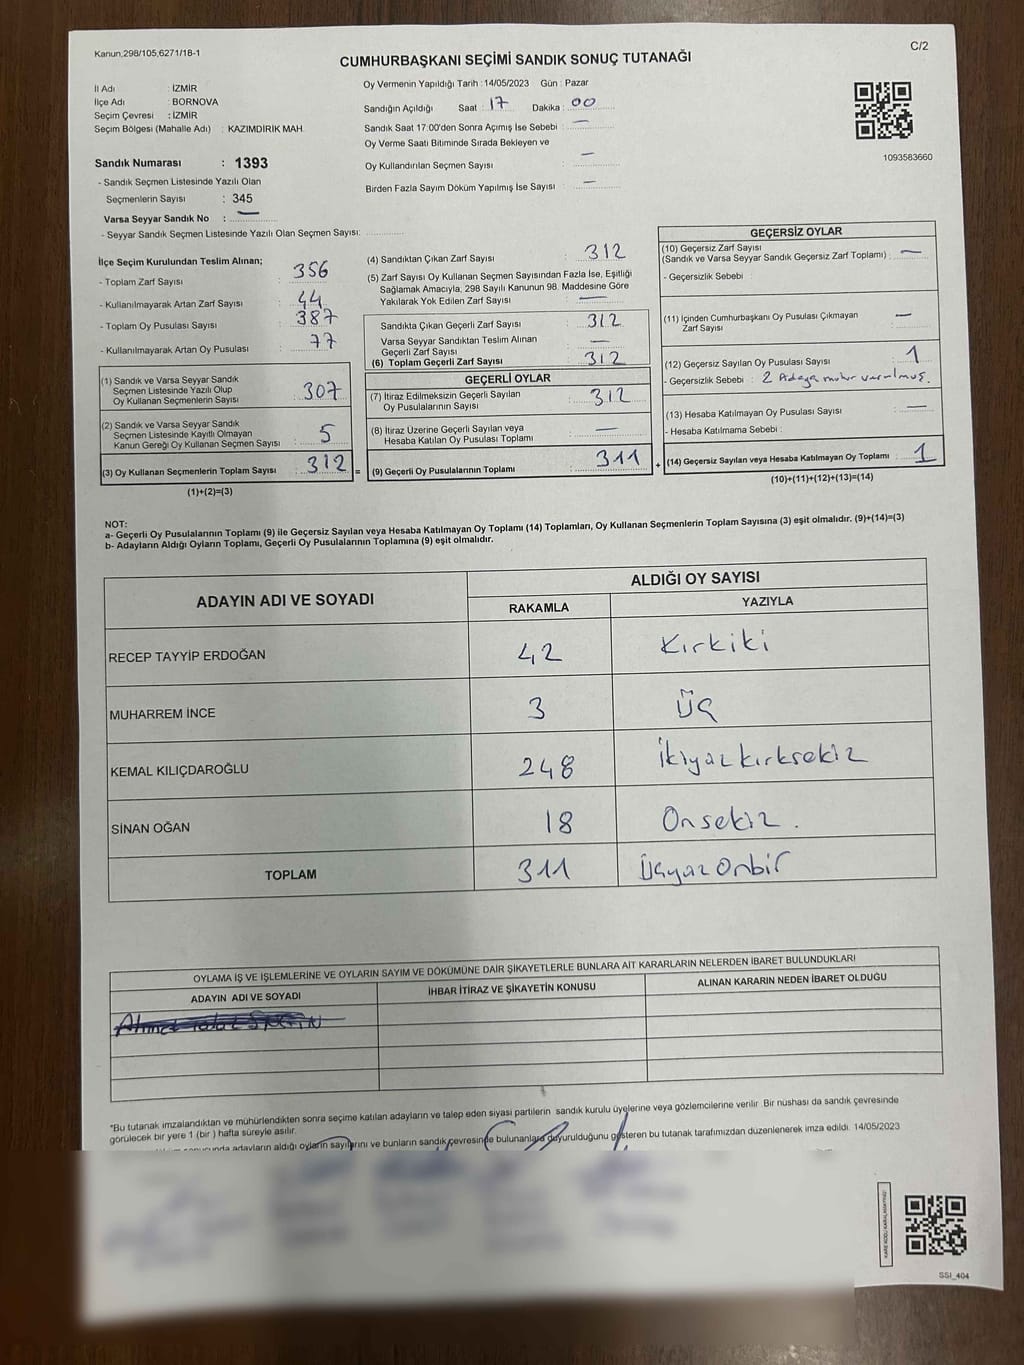 Kanun,298/105,6271/18-1
C/2
CUMHURBAŞKANI SEÇİMİ SANDIK SONUÇ TUTANAĞI
İl Adı : İZMİR
İlçe Adı : BORNOVA
Seçim Çevresi : İZMİR
Seçim Bölgesi (Mahalle Adı) : KAZIMDİRİK MAH.
Oy Vermenin Yapıldığı Tarih : 14/05/2023 Gün : Pazar
Sandığın Açıldığı Saat : 17 Dakika : 00
Sandık Saat 17:00'den Sonra Açımış İse Sebebi : —
Oy Verme Saati Bitiminde Sırada Bekleyen ve
Oy Kullandırılan Seçmen Sayısı : —
Birden Fazla Sayım Döküm Yapılmış İse Sayısı : —
1093583660
Sandık Numarası : 1393
- Sandık Seçmen Listesinde Yazılı Olan
Seçmenlerin Sayısı : 345
Varsa Seyyar Sandık No : —
- Seyyar Sandık Seçmen Listesinde Yazılı Olan Seçmen Sayısı:
İlçe Seçim Kurulundan Teslim Alınan;
- Toplam Zarf Sayısı : 356
- Kullanılmayarak Artan Zarf Sayısı : 44
- Toplam Oy Pusulası Sayısı : 387
- Kullanılmayarak Artan Oy Pusulası : 77
(1) Sandık ve Varsa Seyyar Sandık
Seçmen Listesinde Yazılı Olup
Oy Kullanan Seçmenlerin Sayısı : 307
(2) Sandık ve Varsa Seyyar Sandık
Seçmen Listesinde Kayıtlı Olmayan
Kanun Gereği Oy Kullanan Seçmen Sayısı : 5
(3) Oy Kullanan Seçmenlerin Toplam Sayısı : 312 =
(1)+(2)=(3)
(4) Sandıktan Çıkan Zarf Sayısı : 312
(5) Zarf Sayısı Oy Kullanan Seçmen Sayısından Fazla İse, Eşitliği
Sağlamak Amacıyla, 298 Sayılı Kanunun 98. Maddesine Göre
Yakılarak Yok Edilen Zarf Sayısı : —
Sandıkta Çıkan Geçerli Zarf Sayısı : 312
Varsa Seyyar Sandıktan Teslim Alınan
Geçerli Zarf Sayısı : —
(6) Toplam Geçerli Zarf Sayısı : 312
GEÇERLİ OYLAR
(7) İtiraz Edilmeksizin Geçerli Sayılan
Oy Pusulalarının Sayısı : 312
(8) İtiraz Üzerine Geçerli Sayılan veya
Hesaba Katılan Oy Pusulası Toplamı : —
(9) Geçerli Oy Pusulalarının Toplamı : 311 +
GEÇERSİZ OYLAR
(10) Geçersiz Zarf Sayısı
(Sandık ve Varsa Seyyar Sandık Geçersiz Zarf Toplamı) : —
- Geçersizlik Sebebi :
(11) İçinden Cumhurbaşkanı Oy Pusulası Çıkmayan
Zarf Sayısı : —
(12) Geçersiz Sayılan Oy Pusulası Sayısı : 1
- Geçersizlik Sebebi : 2 Adaya mühür vurulmuş.
(13) Hesaba Katılmayan Oy Pusulası Sayısı : —
- Hesaba Katılmama Sebebi :
(14) Geçersiz Sayılan veya Hesaba Katılmayan Oy Toplamı : 1
(10)+(11)+(12)+(13)=(14)
NOT:
a- Geçerli Oy Pusulalarının Toplamı (9) ile Geçersiz Sayılan veya Hesaba Katılmayan Oy Toplamı (14) Toplamları, Oy Kullanan Seçmenlerin Toplam Sayısına (3) eşit olmalıdır. (9)+(14)=(3)
b- Adayların Aldığı Oyların Toplamı, Geçerli Oy Pusulalarının Toplamına (9) eşit olmalıdır.
ADAYIN ADI VE SOYADI
ALDIĞI OY SAYISI
RAKAMLA YAZIYLA
RECEP TAYYİP ERDOĞAN 42 Kırkiki
MUHARREM İNCE 3 Üç
KEMAL KILIÇDAROĞLU 248 İkiyüzkırksekiz
SİNAN OĞAN 18 Onsekiz.
TOPLAM 311 Üçyüzonbir
OYLAMA İŞ VE İŞLEMLERİNE VE OYLARIN SAYIM VE DÖKÜMÜNE DAİR ŞİKAYETLERLE BUNLARA AİT KARARLARIN NELERDEN İBARET BULUNDUKLARI
ADAYIN ADI VE SOYADI İHBAR İTİRAZ VE ŞİKAYETİN KONUSU ALINAN KARARIN NEDEN İBARET OLDUĞU
*Bu tutanak imzalandıktan ve mühürlendikten sonra seçime katılan adayların ve talep eden siyasi partilerin sandık kurulu üyelerine veya gözlemcilerine verilir. Bir nüshası da sandık çevresinde
görülecek bir yere 1 (bir) hafta süreyle asılır.
adayların aldığı oyların sayılarını ve bunların sandık çevresinde bulunanlara duyurulduğunu gösteren bu tutanak tarafımızdan düzenlenerek imza edildi. 14/05/2023
SSI_404